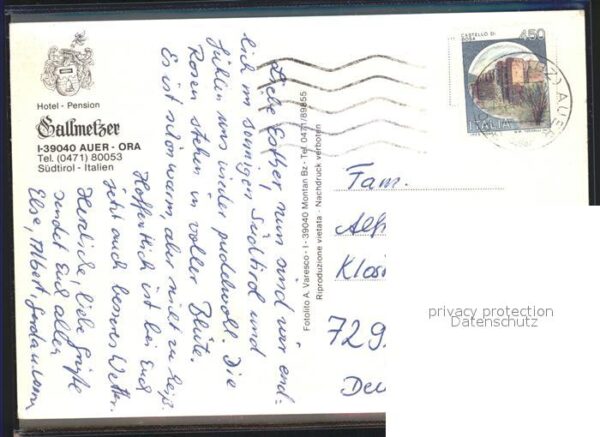 Hotel - Pension
Gallmetzer
I-39040 AUER - ORA
Tel. (0471) 80053
Südtirol - Italien
Liebe Esther, nun sind wir end-
lich im sonnigen Südtirol und
fühlen uns wieder pudelwohl. Die
Rosen stehen in voller Blüte.
Es ist schön warm, aber nicht zu heiß.
Hoffentlich ist bei Euch
jetzt auch besseres Wetter.
Herzliche, liebe Grüße
sendet Euch allen
Else, Albert, Gerda u.
Fotolito A. Varesco - I - 39040 Montan Bz - Tel. 0471/89855
Riproduzione vietata - Nachdruck verboten
CASTELLO DI
450
ITALIA
AUER
Fam.
Alf
Klosi
729
Deu
privacy protection
Datenschutz